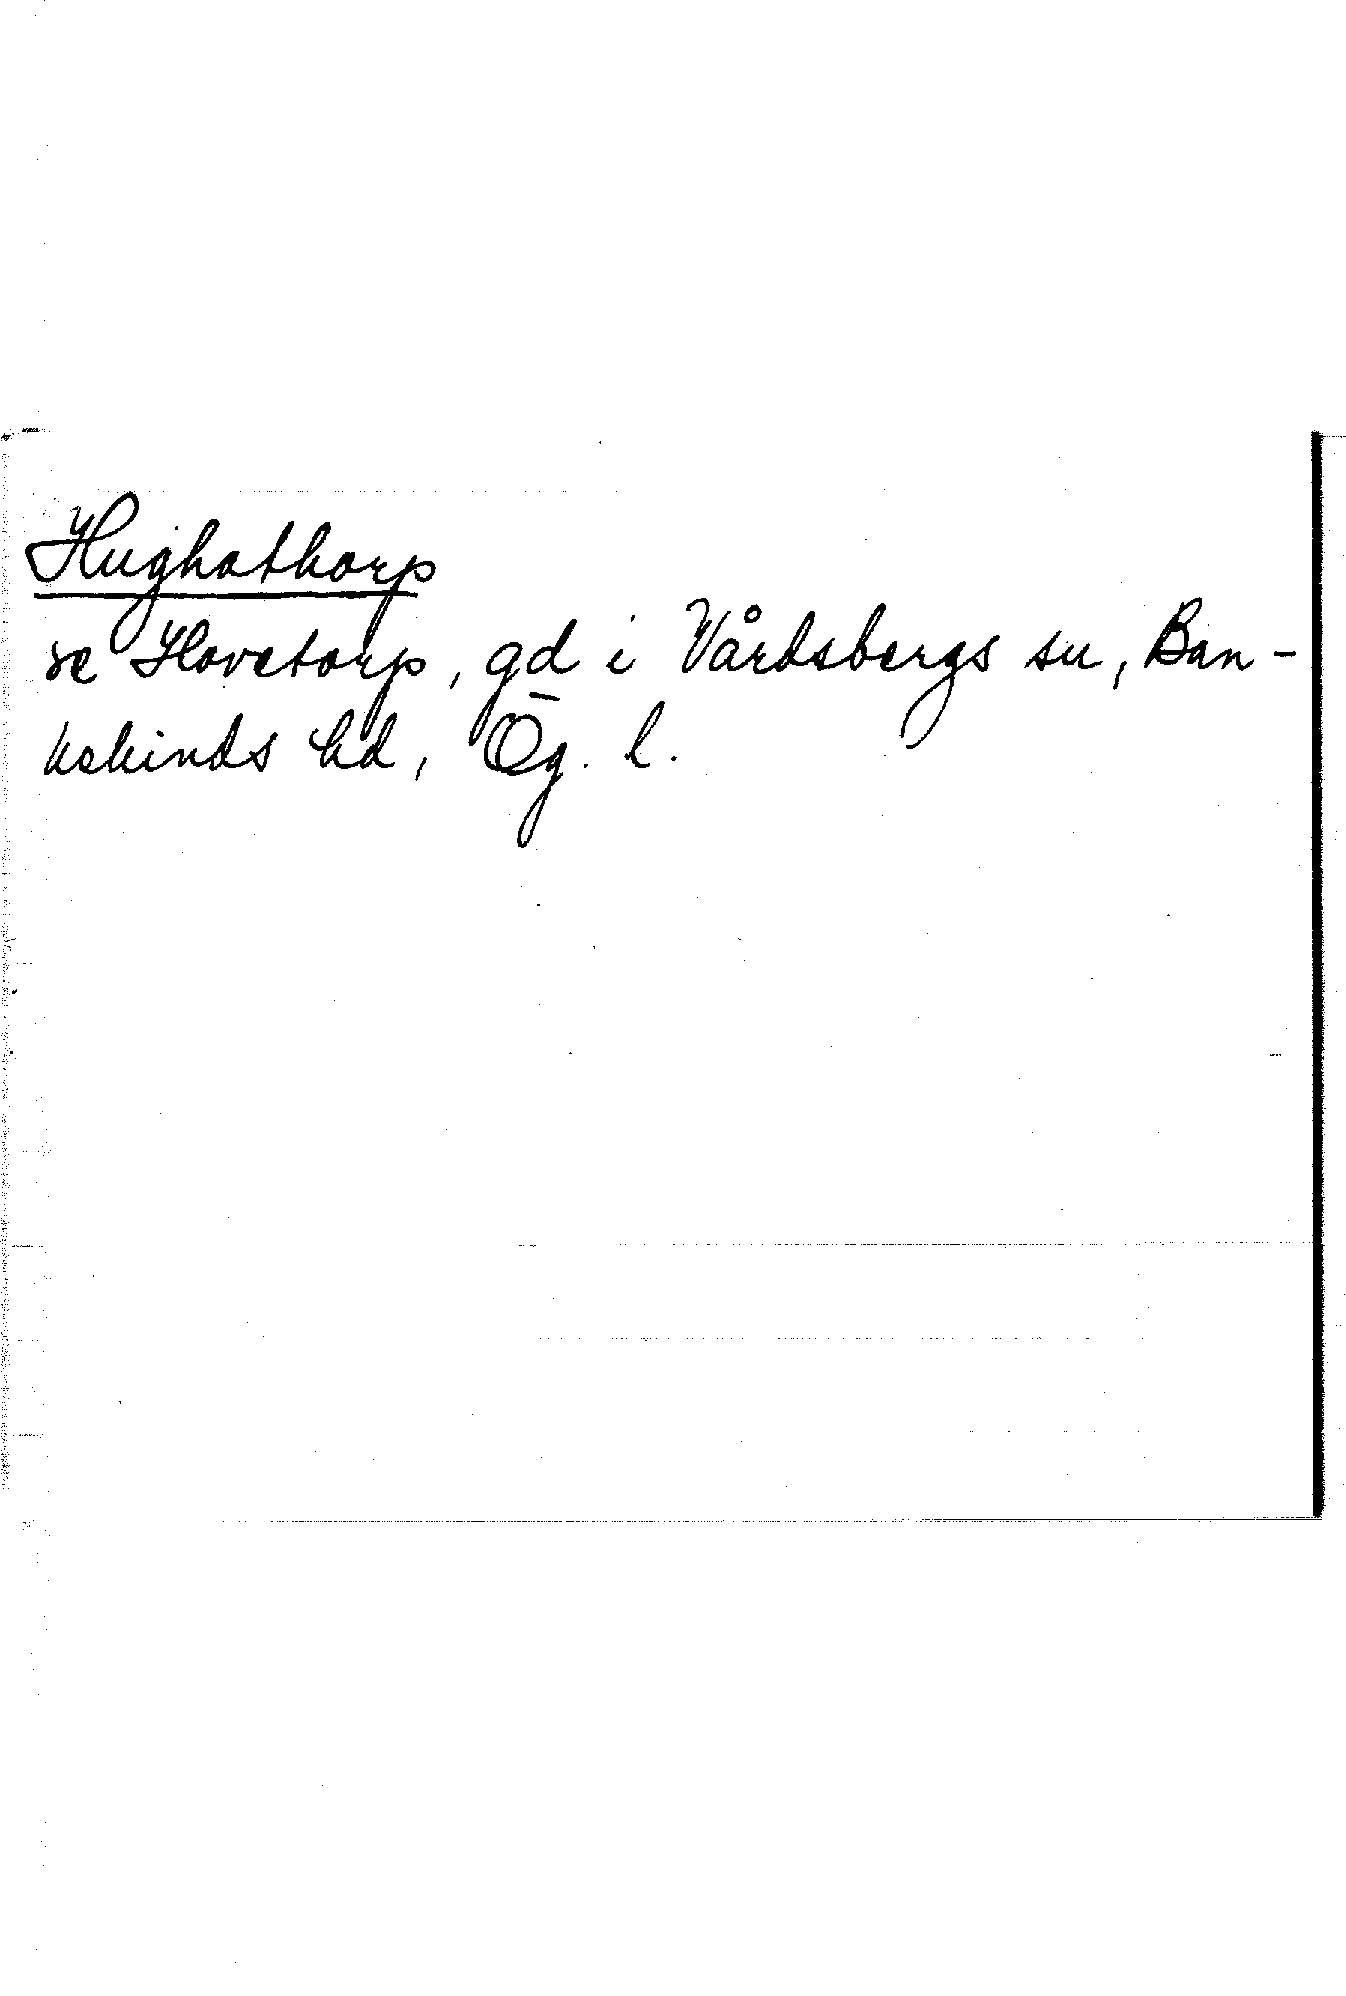 Hughathorp
se Hovetorp, gd i Vårdsbergs sn, Ban-
kekinds hd, Ög. l.